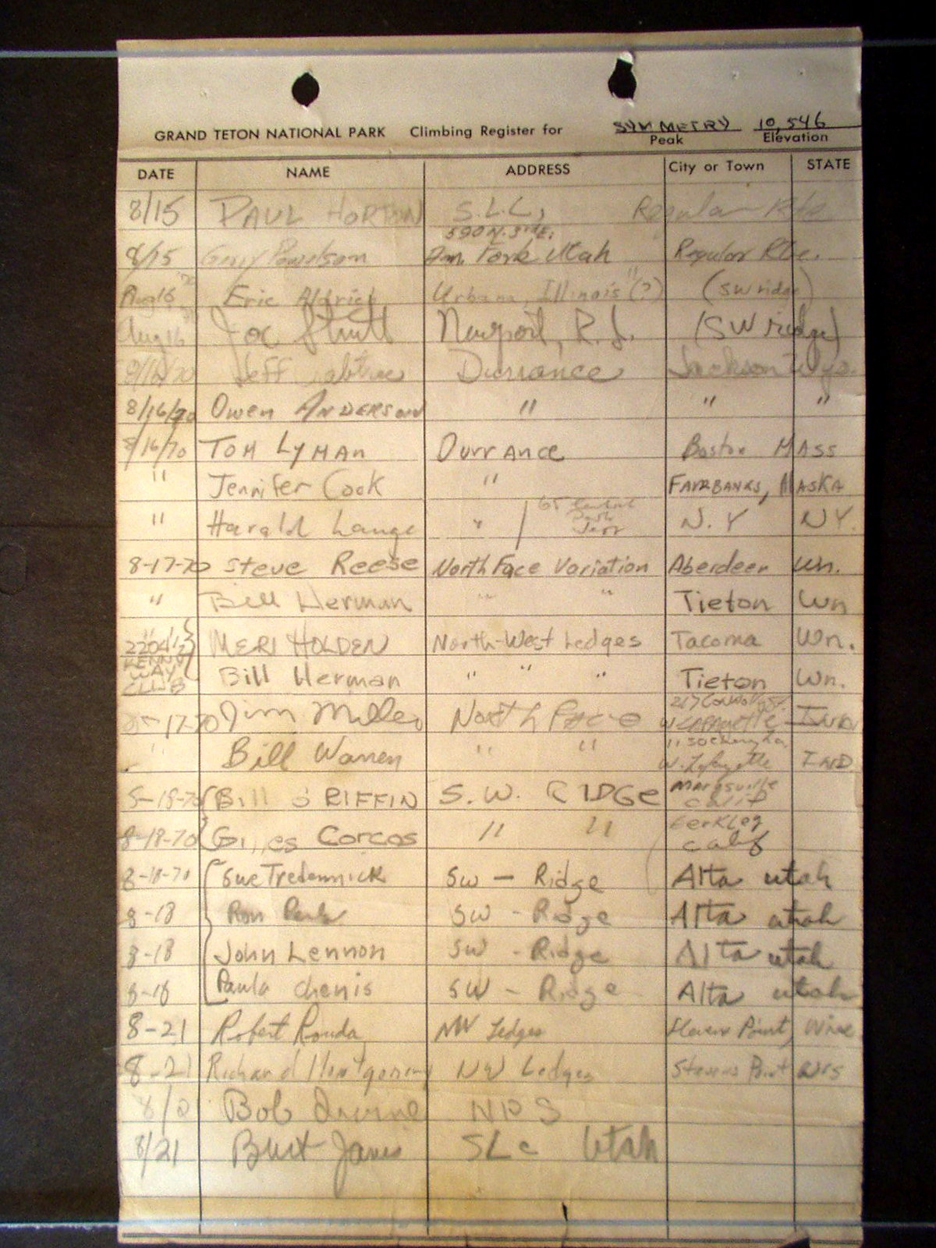 SYMMETRY 10,546
GRAND TETON NATIONAL PARK Climbing Register for Peak Elevation
DATE NAME ADDRESS City or Town STATE
8/15 PAUL HORTON S.L.C, Regular Rte
590 N. 51 E.
8/15 Gerry Powelson Am. Fork Utah Regular Rte.
Aug 16 Eric Aldrich Urbana, Illinois (?) (SW ridge)
Aug 16 Joe Newport, R.I. (SW ridge)
8/16/70 Jeff Durrance Jackson Wyo.
8/16/70 Owen ANDERSON " " "
8/16/70 TOM LYMAN Durrance Boston MASS
" Jennifer Cook " FAIRBANKS, ALASKA
" Harald Lange " 65 Central Park N.Y NY.
8-17-70 Steve Reese North Face Variation Aberdeen Wn.
" Bill Herman " " Tieton Wn
" MERI HOLDEN North-West Ledges Tacoma Wn.
WAY CLUB Bill Herman " " " Tieton Wn.
8-17-70 Jim Miller North Face W. LAFAYETTE IND.
" Bill Warren " " W. Lafayette IND
8-18-70 Bill GRIFFIN S.W. RIDGE Marysville Calif
8-18-70 Gilles Corcos " " Berkley Calif
8-18-70 Sue Tredennick SW - Ridge Alta utah
8-18 Ron SW - Ridge Alta utah
8-18 John Lennon SW - Ridge Alta utah
8-18 Paula chenis SW - Ridge Alta utah
8-21 Robert Rouda NW Ledges Stevens Point, Wisc
8-21 Richard Montgomery NW Ledges Stevens Point Wis
Bob Irvine NPS
8/21 Burt Janis SLC Utah